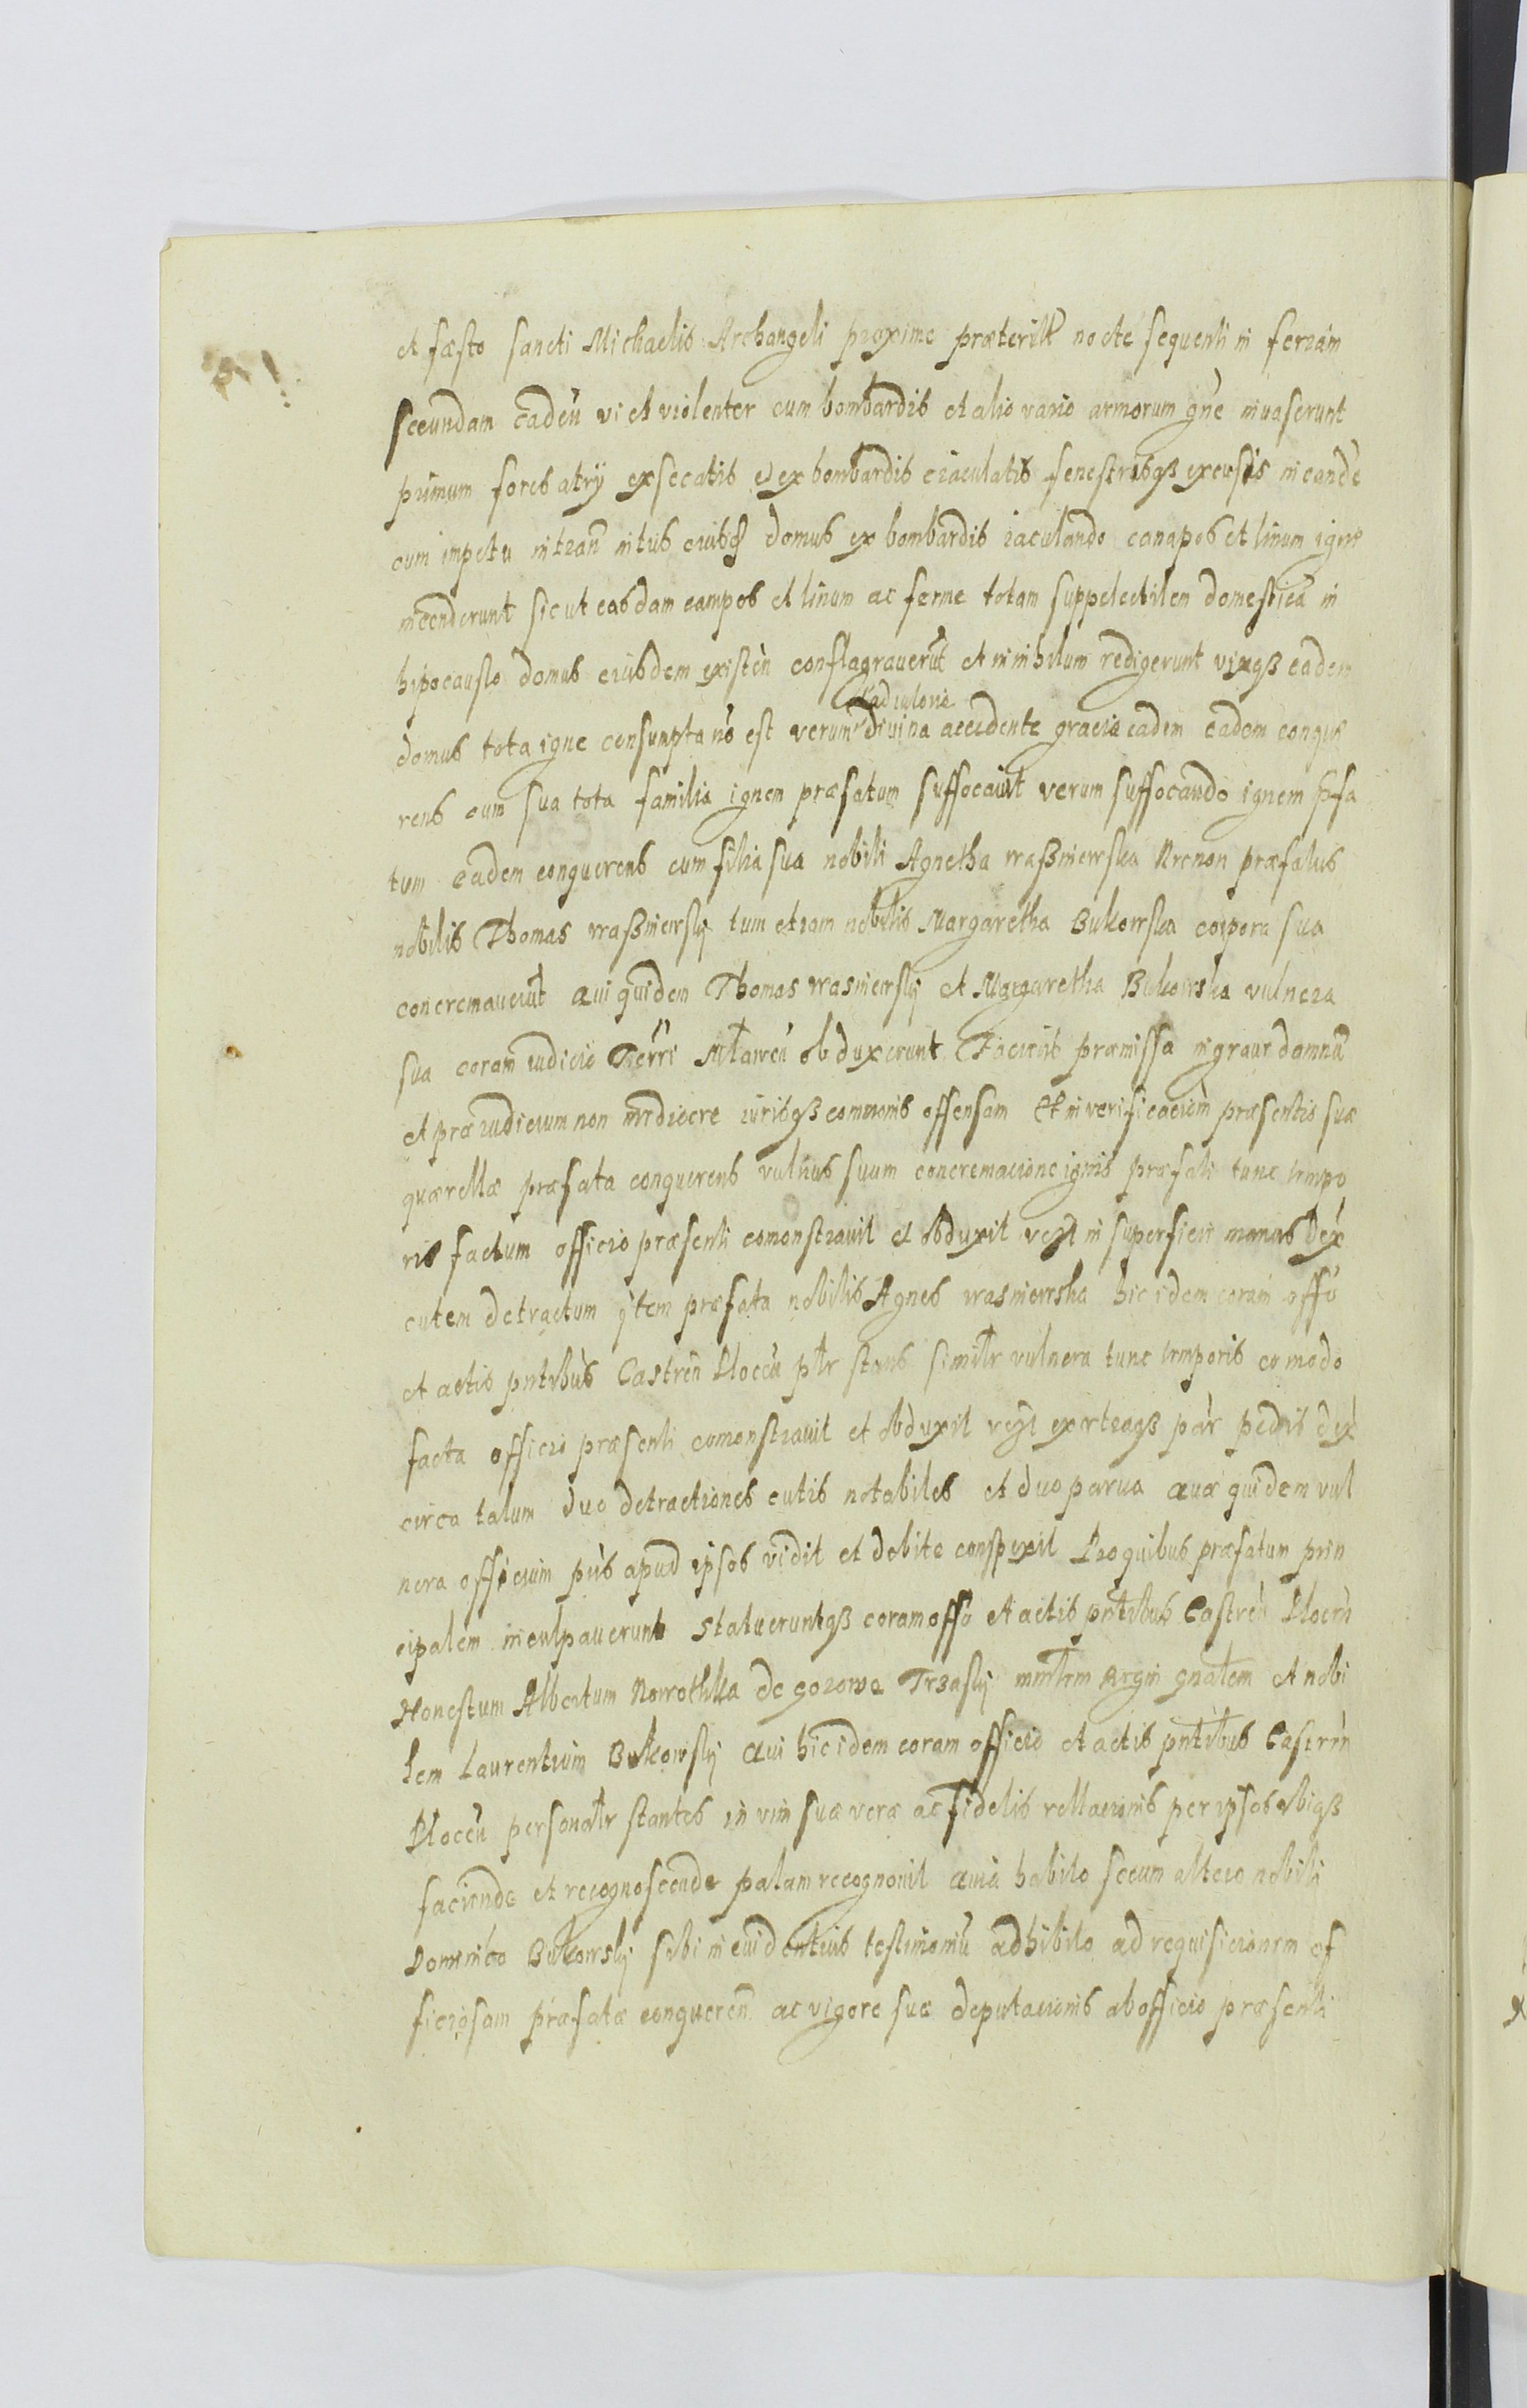 et fæsto sancti Michaelis Archangeli proxime præterit nocte sequenti in feriam
secundam caden vi et violenter cum bombardis et alio vario armorum gne invaserunt
primum fores atrii exsecatis et ex bombardis eiaculatis fenestrisqß excussis in eande
cum impetu intran intus eiusd domus ex bombardis iaculando canapos et linum igne
incenderunt sic ut easdam campos et linum ac ferme totam suppelectilem domestica in
hipocausto domus eiusdem existen conflagraverut et in nihilum redigerunt vixqß eadem
adiutorio
domus tota igne consumpta no est verum divina accedente gracia eadem eadem conque
rens cum sua tota familia ignem præfatum suffocavit verum suffocando ignem præfa
tum eadem conquerens cum filia sua nobili Agnetha wraßniewska Necnon præfatus
nobilis Thomas wraßniewsky tum etiam nobilis Margaretha Bukowska corpora sua
concremaverut qui quidem Thomas wrasniewsky et Margaretha Bukowska vulnera
sua coram iudicio Terri Mlawen obduxerunt Faciens præmissa in grave damnu
et præiudicium non mediocre iurisqß communis offensam Et in verificacion præsentis suæ
quærellæ præfata conquerens vulnus suum concremacione ignis præfati tunc tempo
ris factum officio præsenti comonstravit et obduxit vezt in superficie manus dex
cutem detractum item præfata nobilis Agnes wrasniewska hic idem coram offo
et actis pntibus Castren Plocen plr stans similr vulnera tunc temporis eo modo
facta officio præsenti comonstravit et obduxit vezt exterqß par pedis dex
circa talum duo detractiones cutis notabiles et duo parva quæ quidem vul
nera officium pns apud ipsos vidit et debite conspexit Pro quibus præfatum prin
cipalem inculpaverunt statueruntqß coram offo et actis pntibus Castren Plocen
Honestum Albertum Nowothka de gozowe Trzasky mnlrm Regni gnalem et nobi
lem Laurentium Bukowsky qui hic idem coram officio et actis pntibus Castren
Plocen personalr stantes in vim suæ veræ ac fidelis rellacionis per ipsos ubiqß
faciende et recognoscende palam recognovit quia habito secum altero nobili
Dominico Bukowsky sibi in evidentius testimoniu adhibito ad requisicionem of
ficiosam præfatæ conqueren ac vigore suæ deputacionis ab officio præsenti